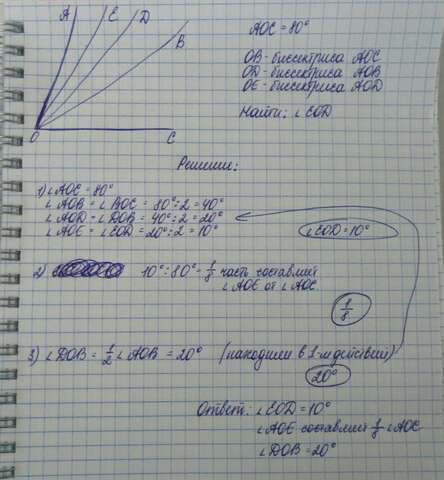 A E D B
O C
AOC = 80°
OB - биссектриса AOC
OD - биссектриса AOB
OE - биссектриса AOD
Найти: ∠EOD
Решение:
1) ∠AOC = 80°
∠AOB = ∠BOC = 80°:2 = 40°
∠AOD = ∠DOB = 40°:2 = 20°
∠AOE = ∠EOD = 20°:2 = 10°
∠EOD = 10°
2) 10°:80° - 1/8 часть составляет
∠AOE от ∠AOC.
1/8
3) ∠DOB = 1/2 ∠AOB = 20° (находили в 1-м действии)
20°
Ответ: ∠EOD = 10°
∠AOE составляет 1/8 ∠AOC
∠DOB = 20°